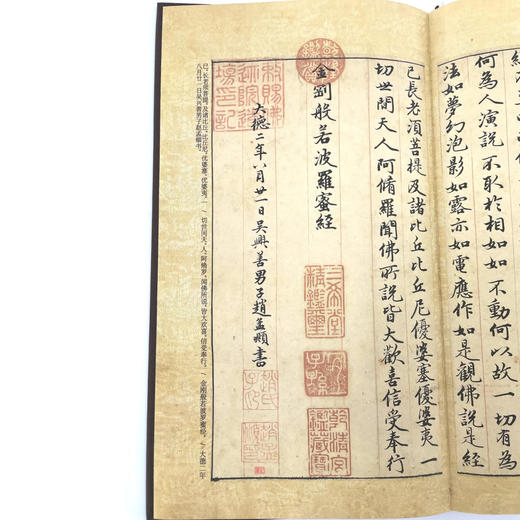 何為人演說不取於相如如不動何以故一切有為
法如夢幻泡影如露亦如電應作如是觀佛說是經
已長老須菩提及諸比丘比丘尼優婆塞優婆夷一
切世間天人阿脩羅聞佛所說皆大歡喜信受奉行
三希堂精鑑璽
宜子孫
乾清宮鑑藏寶
金剛般若波羅蜜經
大德二年八月廿一日吳興善男子趙孟頫書
趙氏子昂
已，长老须菩提，及诸比丘、比丘尼、优婆塞、优婆夷、一切世间天、人、阿修罗，闻佛所说，皆大欢喜，信受奉行。/金刚般若波罗蜜经。/大德二年
八月廿一日吴兴善男子赵孟頫书。